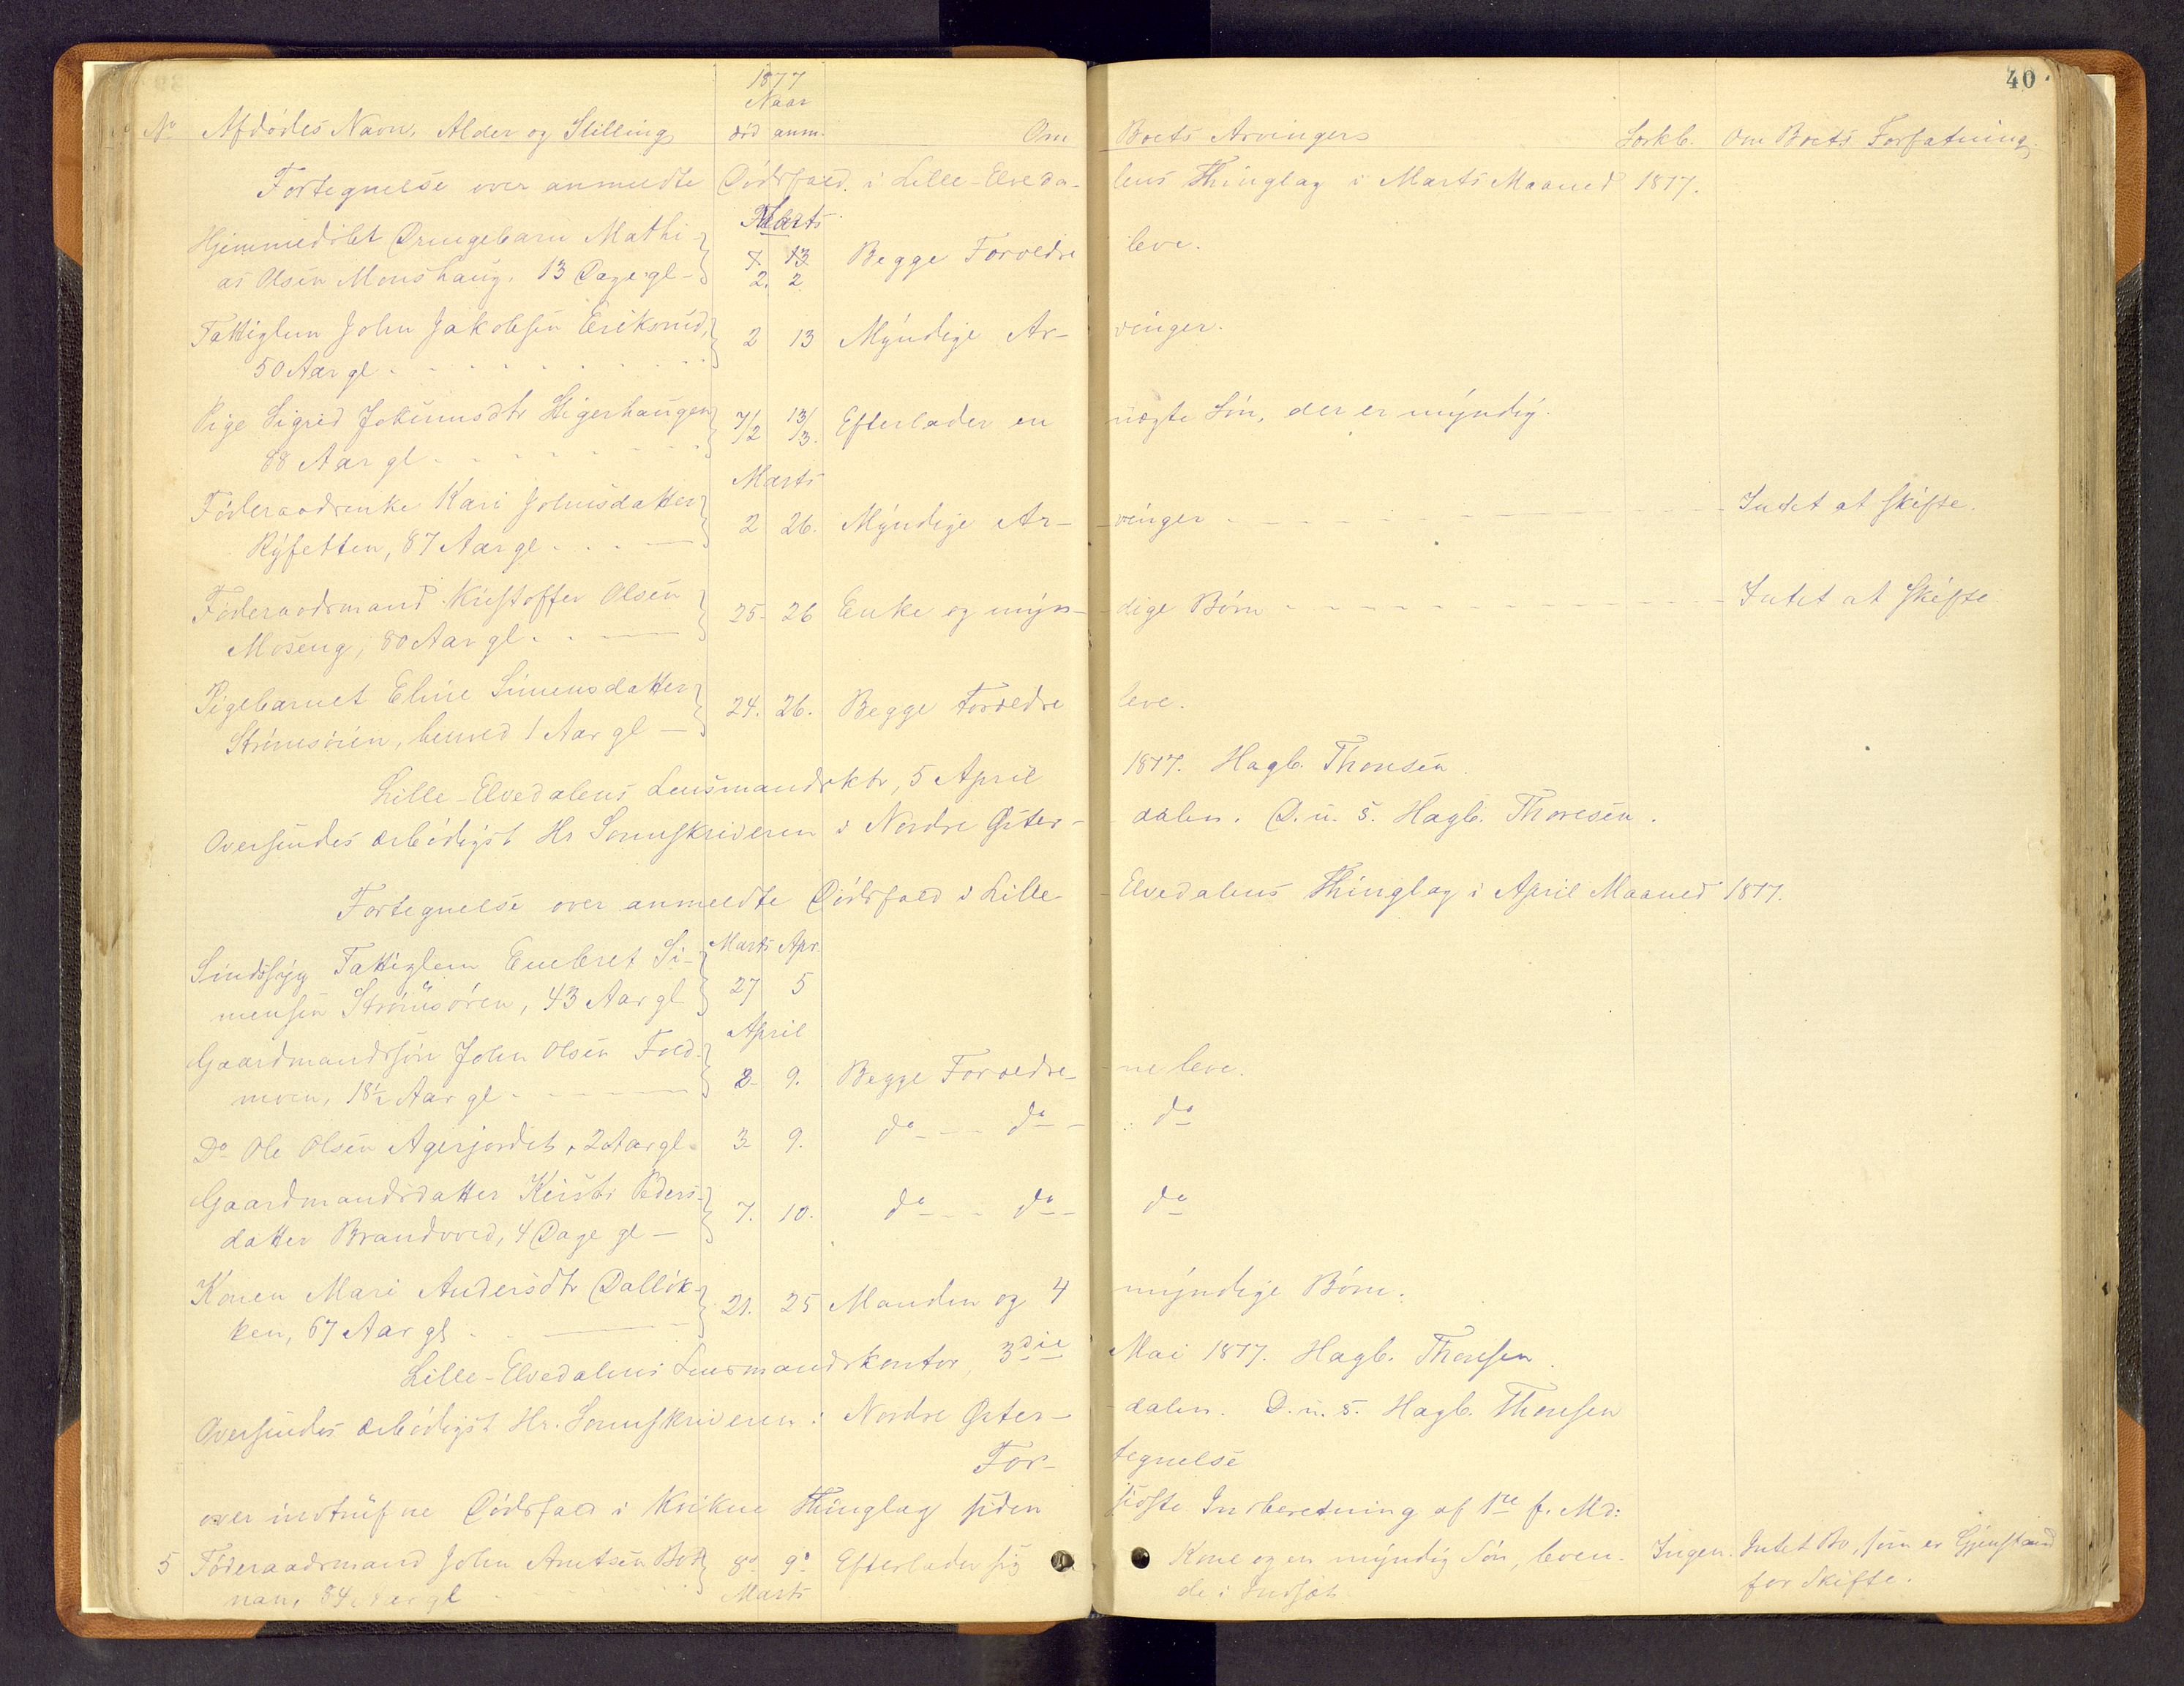 40.
1877
Naar
No Afdødes Navn, Alder og Stilling død anm. Om Boets Arvingers Lorkb. Om Boets Forfatning.
Fortegnelse over anmeldte Dødsfald i Lille-Elveda- lens Thinglag i Marts Maaned 1877.
Marts
Hjemmedøbt Drengebarn Mathi- 7 13 Begge Forældre leve.
as Olsen Monshaug, 13 Dage gl - 2. 2.
Fattiglem John Jakobsen Eriksrud, 2 13 Myndige Ar- vinger.
50 Aar gl
Pige Sigrid Johnnsdtr Steigerhaugen 7/2 13/3. Efterlader en uægte Søn, der er myndig.
88 Aar gl
Marts
Føderaadsenke Kari Johnsdatter 2 26. Myndige Ar- vinger Intet at skifte.
Ryfetten, 87 Aar gl
Føderaadsmand Kristoffer Olsen 25- 26 Enke og myn- dige Børn Intet at skifte
Moseng, 80 Aar gl.
Pigebarnet Eline Simensdatter 24. 26. Begge Forældre leve.
Strømsøien, henved 1 Aar gl -
Lille-Elvedalens Lensmandsktr, 5 April 1877. Hagb. Thoresen.
Oversendes ærbødigst Hr Sorenskriveren i Nordre Øster- dalen. D. u. s. Hagb. Thoresen.
Fortegnelse over anmeldte Dødsfald i Lille- Elvedalens Thinglag i April Maaned 1877.
Marts Apr.
Sindssyg Fattiglem Enebret Si- 27 5
mensen Strømsøren, 43 Aar gl
April
Gaardmandssøn John Olsen Fold- 2- 9. Begge Forældre- ne leve.
moen, 18½ Aar gl
Do Ole Olsen Agerjordet, 2 Aar gl. 3- 9. do do do
Gaardmandsdatter Kirsti Peders- 7. 10. do do do
datter Brandvold, 4 Dage gl -
Konen Mari Andersdtr Dalløk- 21. 25 Manden og 4 myndige Børn.
ken, 67 Aar gl
Lille-Elvedalens Lensmandskontor, 3die Mai 1877. Hagb. Thoresen.
Oversendes ærbødigst Hr. Sorenskriveren i Nordre Øster- dalen. D. u. s. Hagb. Thoresen
For- tegnelse
over indtrufne Dødsfald i Kvikne Thinglag siden sidste Indberetning af 1ste f. Md:
5 Føderaadsmand John Arntsen Bod- 8de 9de Efterlader sig Kone og en myndig Søn, leven- Ingen. Intet Bo, som er Gjenstand
nan, 84 Aar gl Marts de i Indset for Skifte.